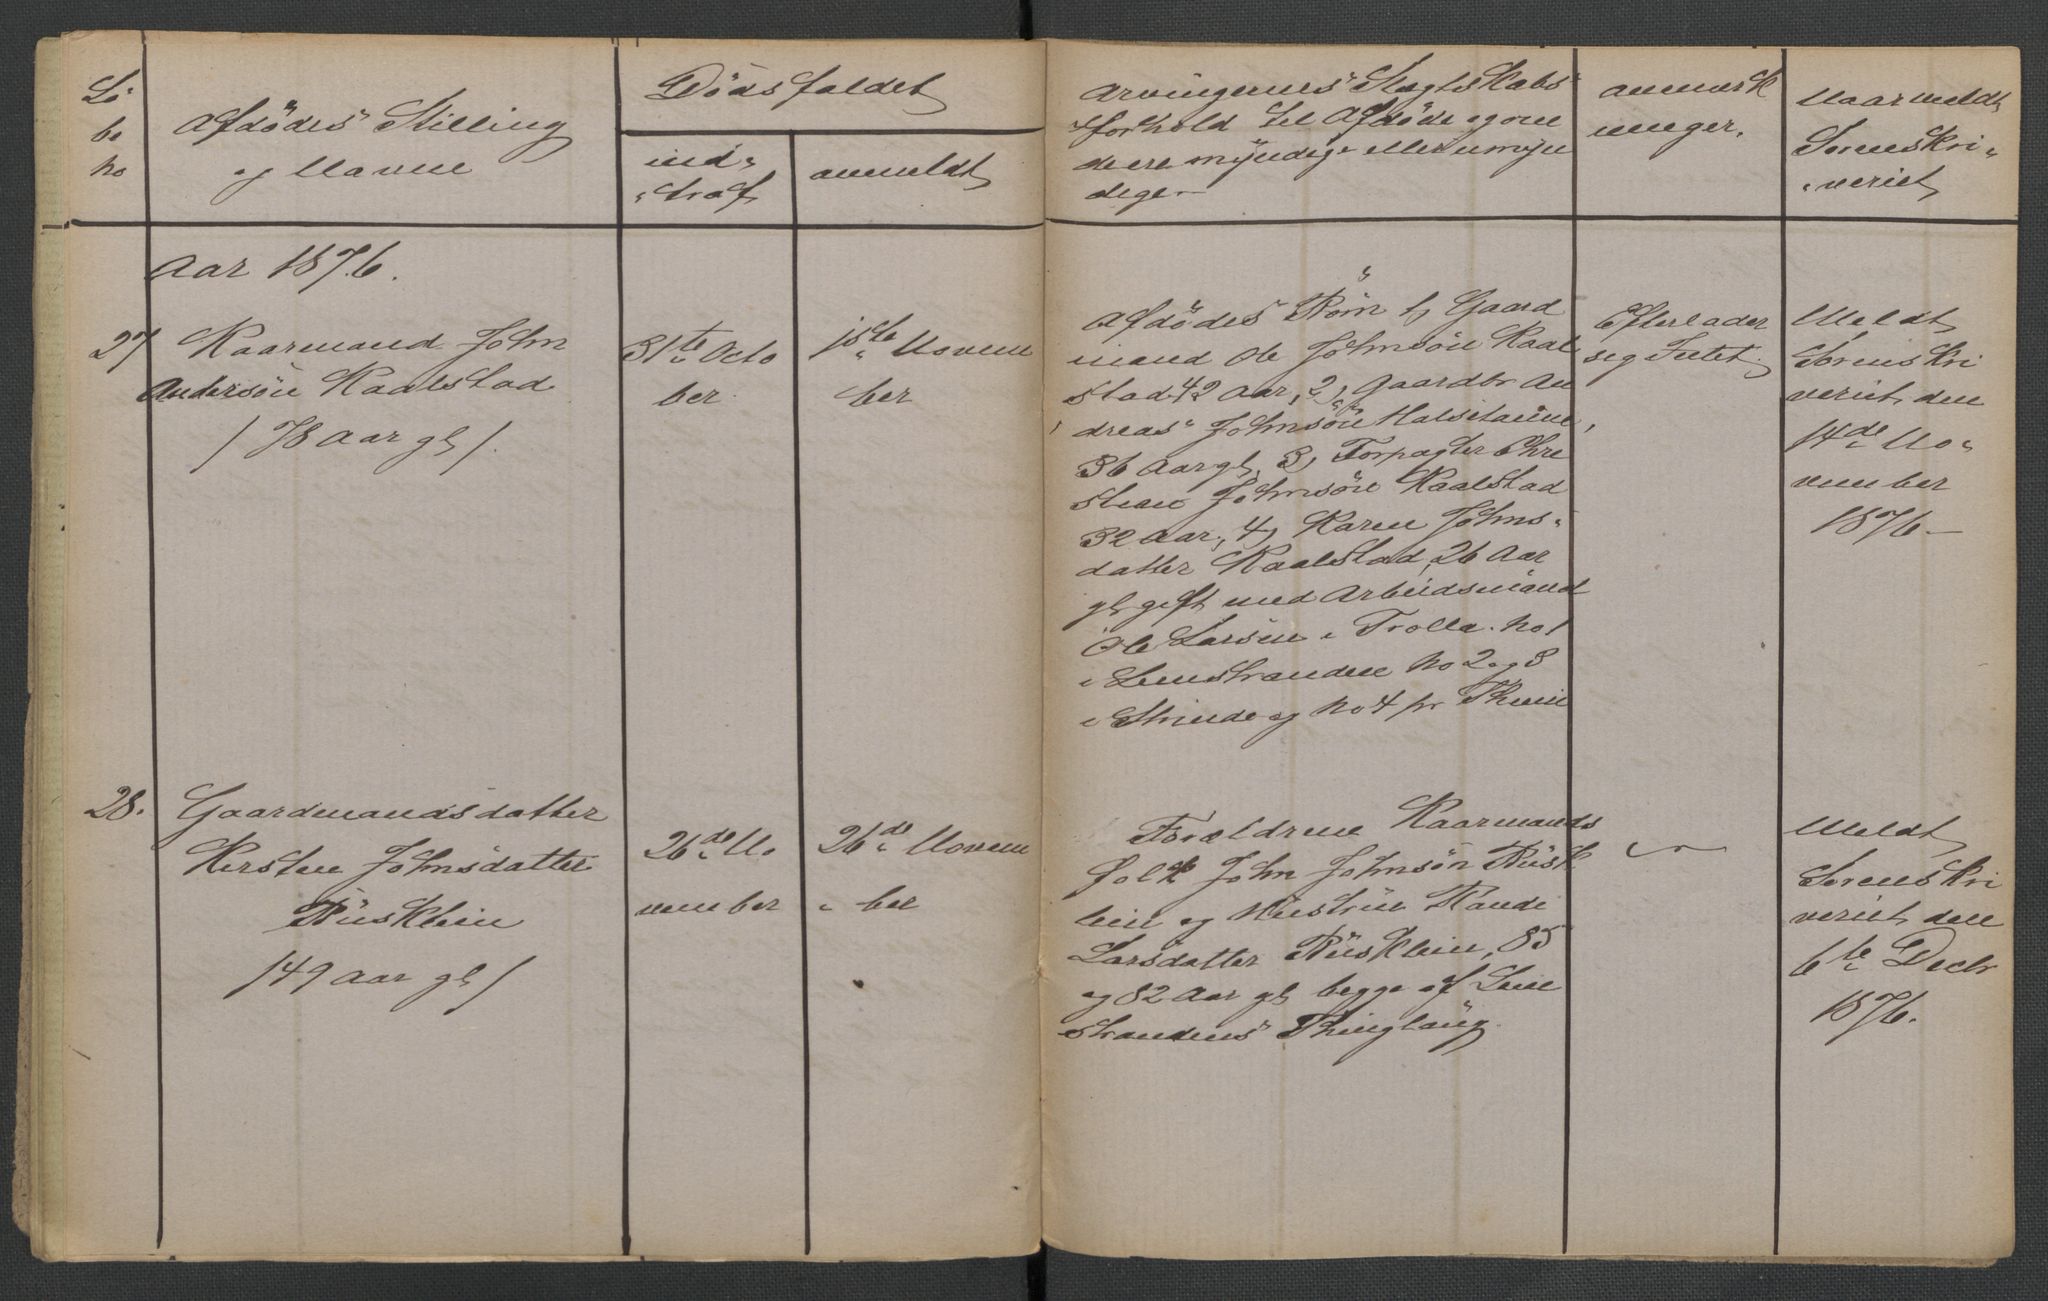 Lö
be
no
Afdödes Stilling
og Navne
Dödsfaldet
ind-
traf
anmeldt
Arvingernes Slegtskabs
forhold til Afdöde og om
de ere myndige eller umyn
dige
Anmærk
ninger.
Naar meldt
Sorenskri-
veriet
Aar 1876.
27
Kaarmand John
Andersön Kaalstad
/78 Aar gl/.
31te Octo
ber
1ste Novem
ber
Afdödes Börn 1, Gaard
mand Ole Johnsön Kaal
stad 42 Aar, 2, Gaardbr An
dreas Johnsön Halsetaune,
36 Aar gl, 3, Forpagter Chre
stian Johnsön Kaalstad
32 Aar, 4, Karen Johns-
datter Kaalstad, 26 Aar
gl gift med Arbeidsmand
Ole Larsen i Trolla. No 1
i Leinstranden No 2 og 3
i Strinde og No 4 pr Thiem
Efterlader
sig Intet.
Meldt
Sorenskri
veriet den
14de No-
vember
1876 -
28.
Gaardmandsdatter
Kirsten Johnsdatter
Rüsklein
/49 Aar gl/
26de No
vember
26de Novem
ber
Forældrene Kaarmands
folk John Johnsön Rüsk
lein og Hustrue Randi
Larsdatter Rüsklein, 85
og 82 Aar gl begge af Lein
strandens Thinglaug.
Meldt
Sorenskri
veriet den
6te Decbr
1876.